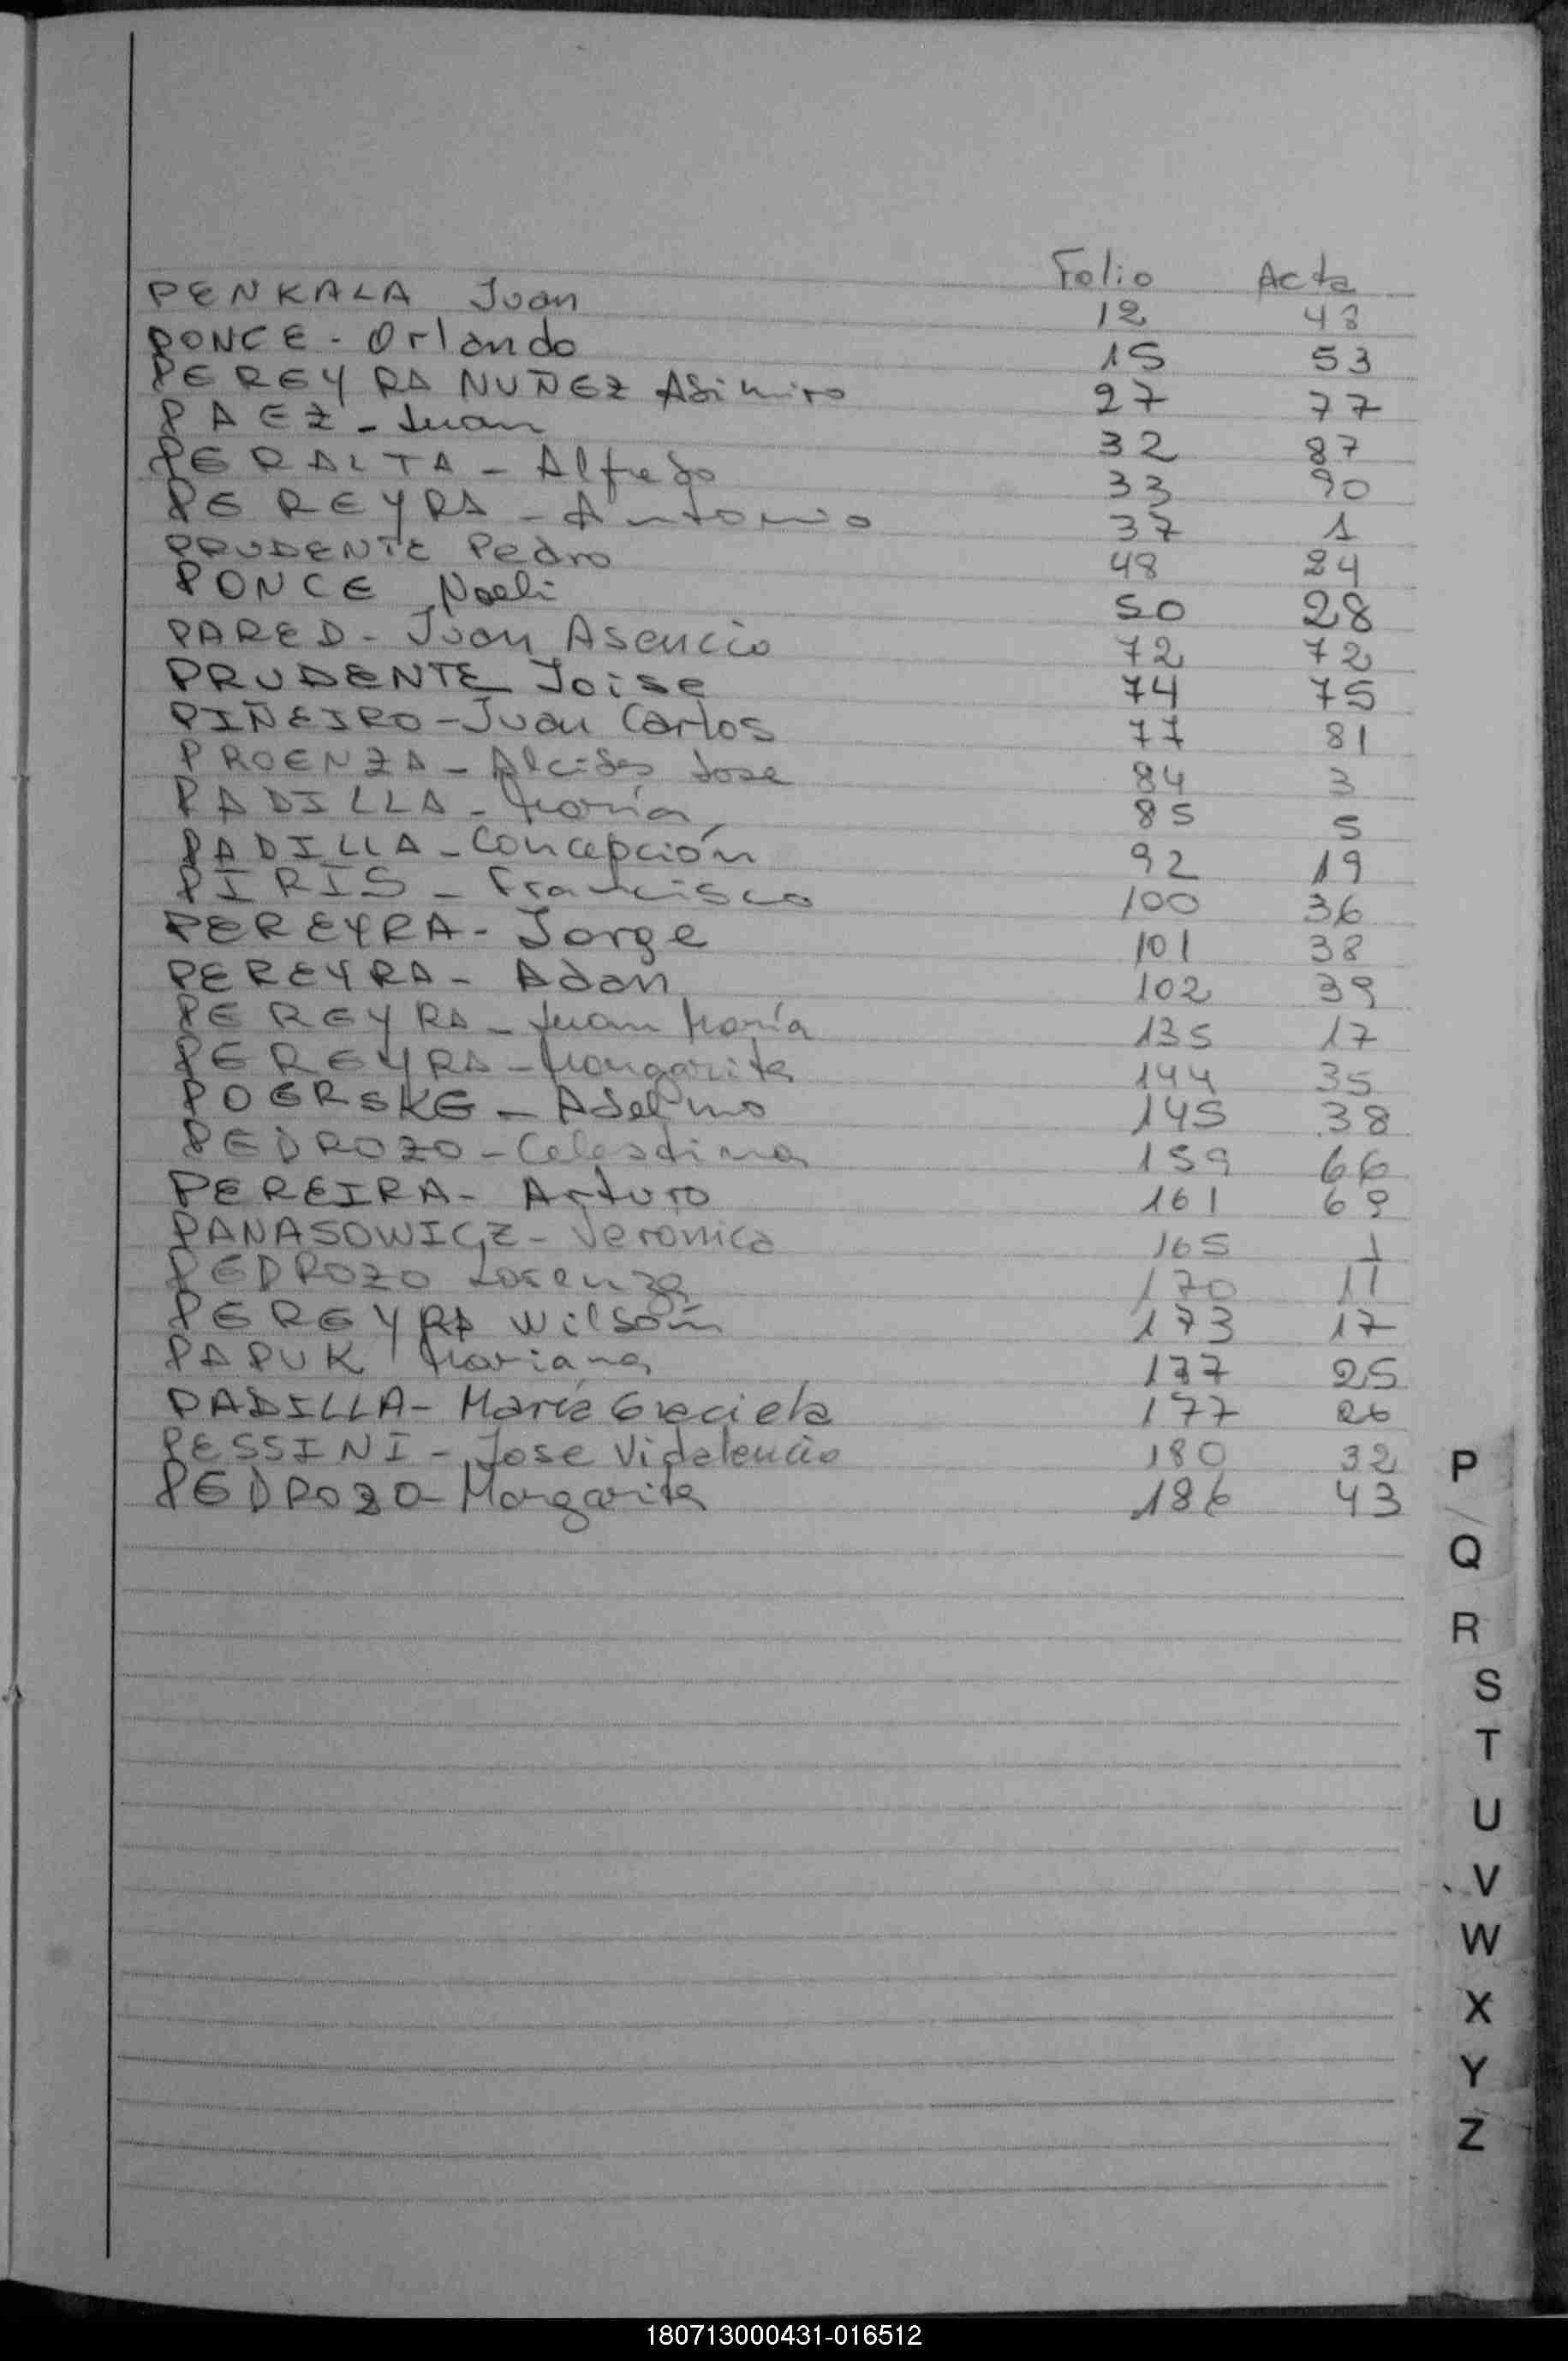 Folio Acta
PENKALA Juan 12 48
PONCE - Orlando 15 53
PEREYRA NUÑEZ 27 77
PAEZ - Juan 32 87
PERALTA - Alfredo 33 90
PEREYRA - Antonio 37 1
PRUDENTE Pedro 48 24
PONCE Noeli 50 28
PARED - Juan Asencio 72 72
PRUDENTE Joise 74 75
PIÑEIRO - Juan Carlos 77 81
PROENZA - Alcides Jose 84 3
PADILLA - María 85 5
PADILLA - Concepción 92 19
PIRIS - Francisco 100 36
PEREYRA - Jorge 101 38
PEREYRA - Adan 102 39
PEREYRA - Juan María 135 17
PEREYRA - Margarita 144 35
POERSKE - Adelmo 145 38
PEDROZO - Celestina 159 66
PEREIRA - Arturo 161 69
PANASOWICZ - Veronica 165 1
PEDROZO Lorenza 170 11
PEREYRA Wilson 173 17
PAPUK Mariana 177 25
PADILLA - María Graciela 177 26
PESSINI - Jose Vidalencio 180 32
PEDROZO - Margarita 186 43
P
Q
R
S
T
U
V
W
X
Y
Z
180713000431-016512